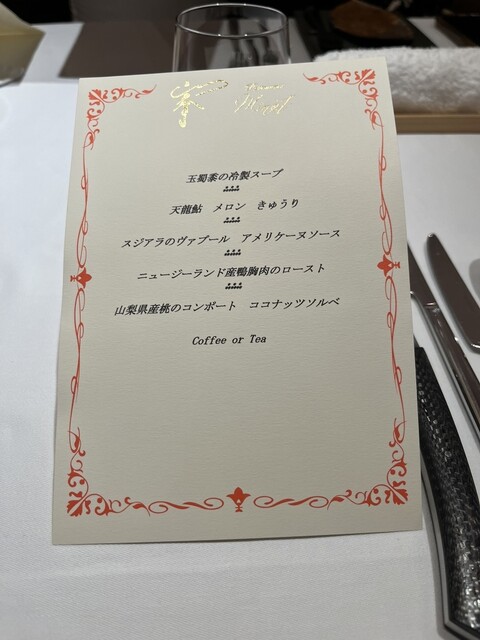 玉蜀黍の冷製スープ
天龍鮎　メロン　きゅうり
スジアラのヴァプール　アメリケーヌソース
ニュージーランド産鴨胸肉のロースト
山梨県産桃のコンポート　ココナッツソルベ
Coffee or Tea